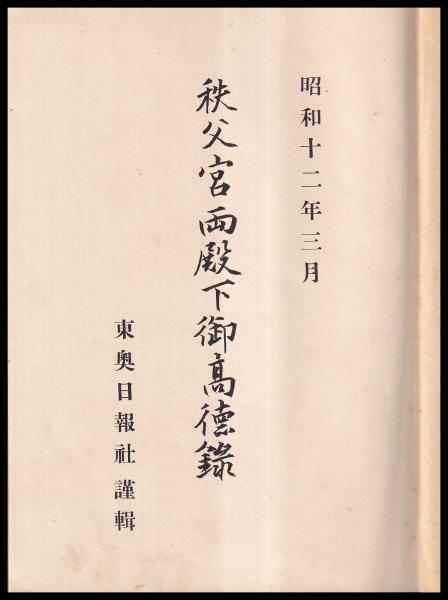 昭和十二年三月
秩父宮両殿下御高徳錄
東奥日報社謹輯